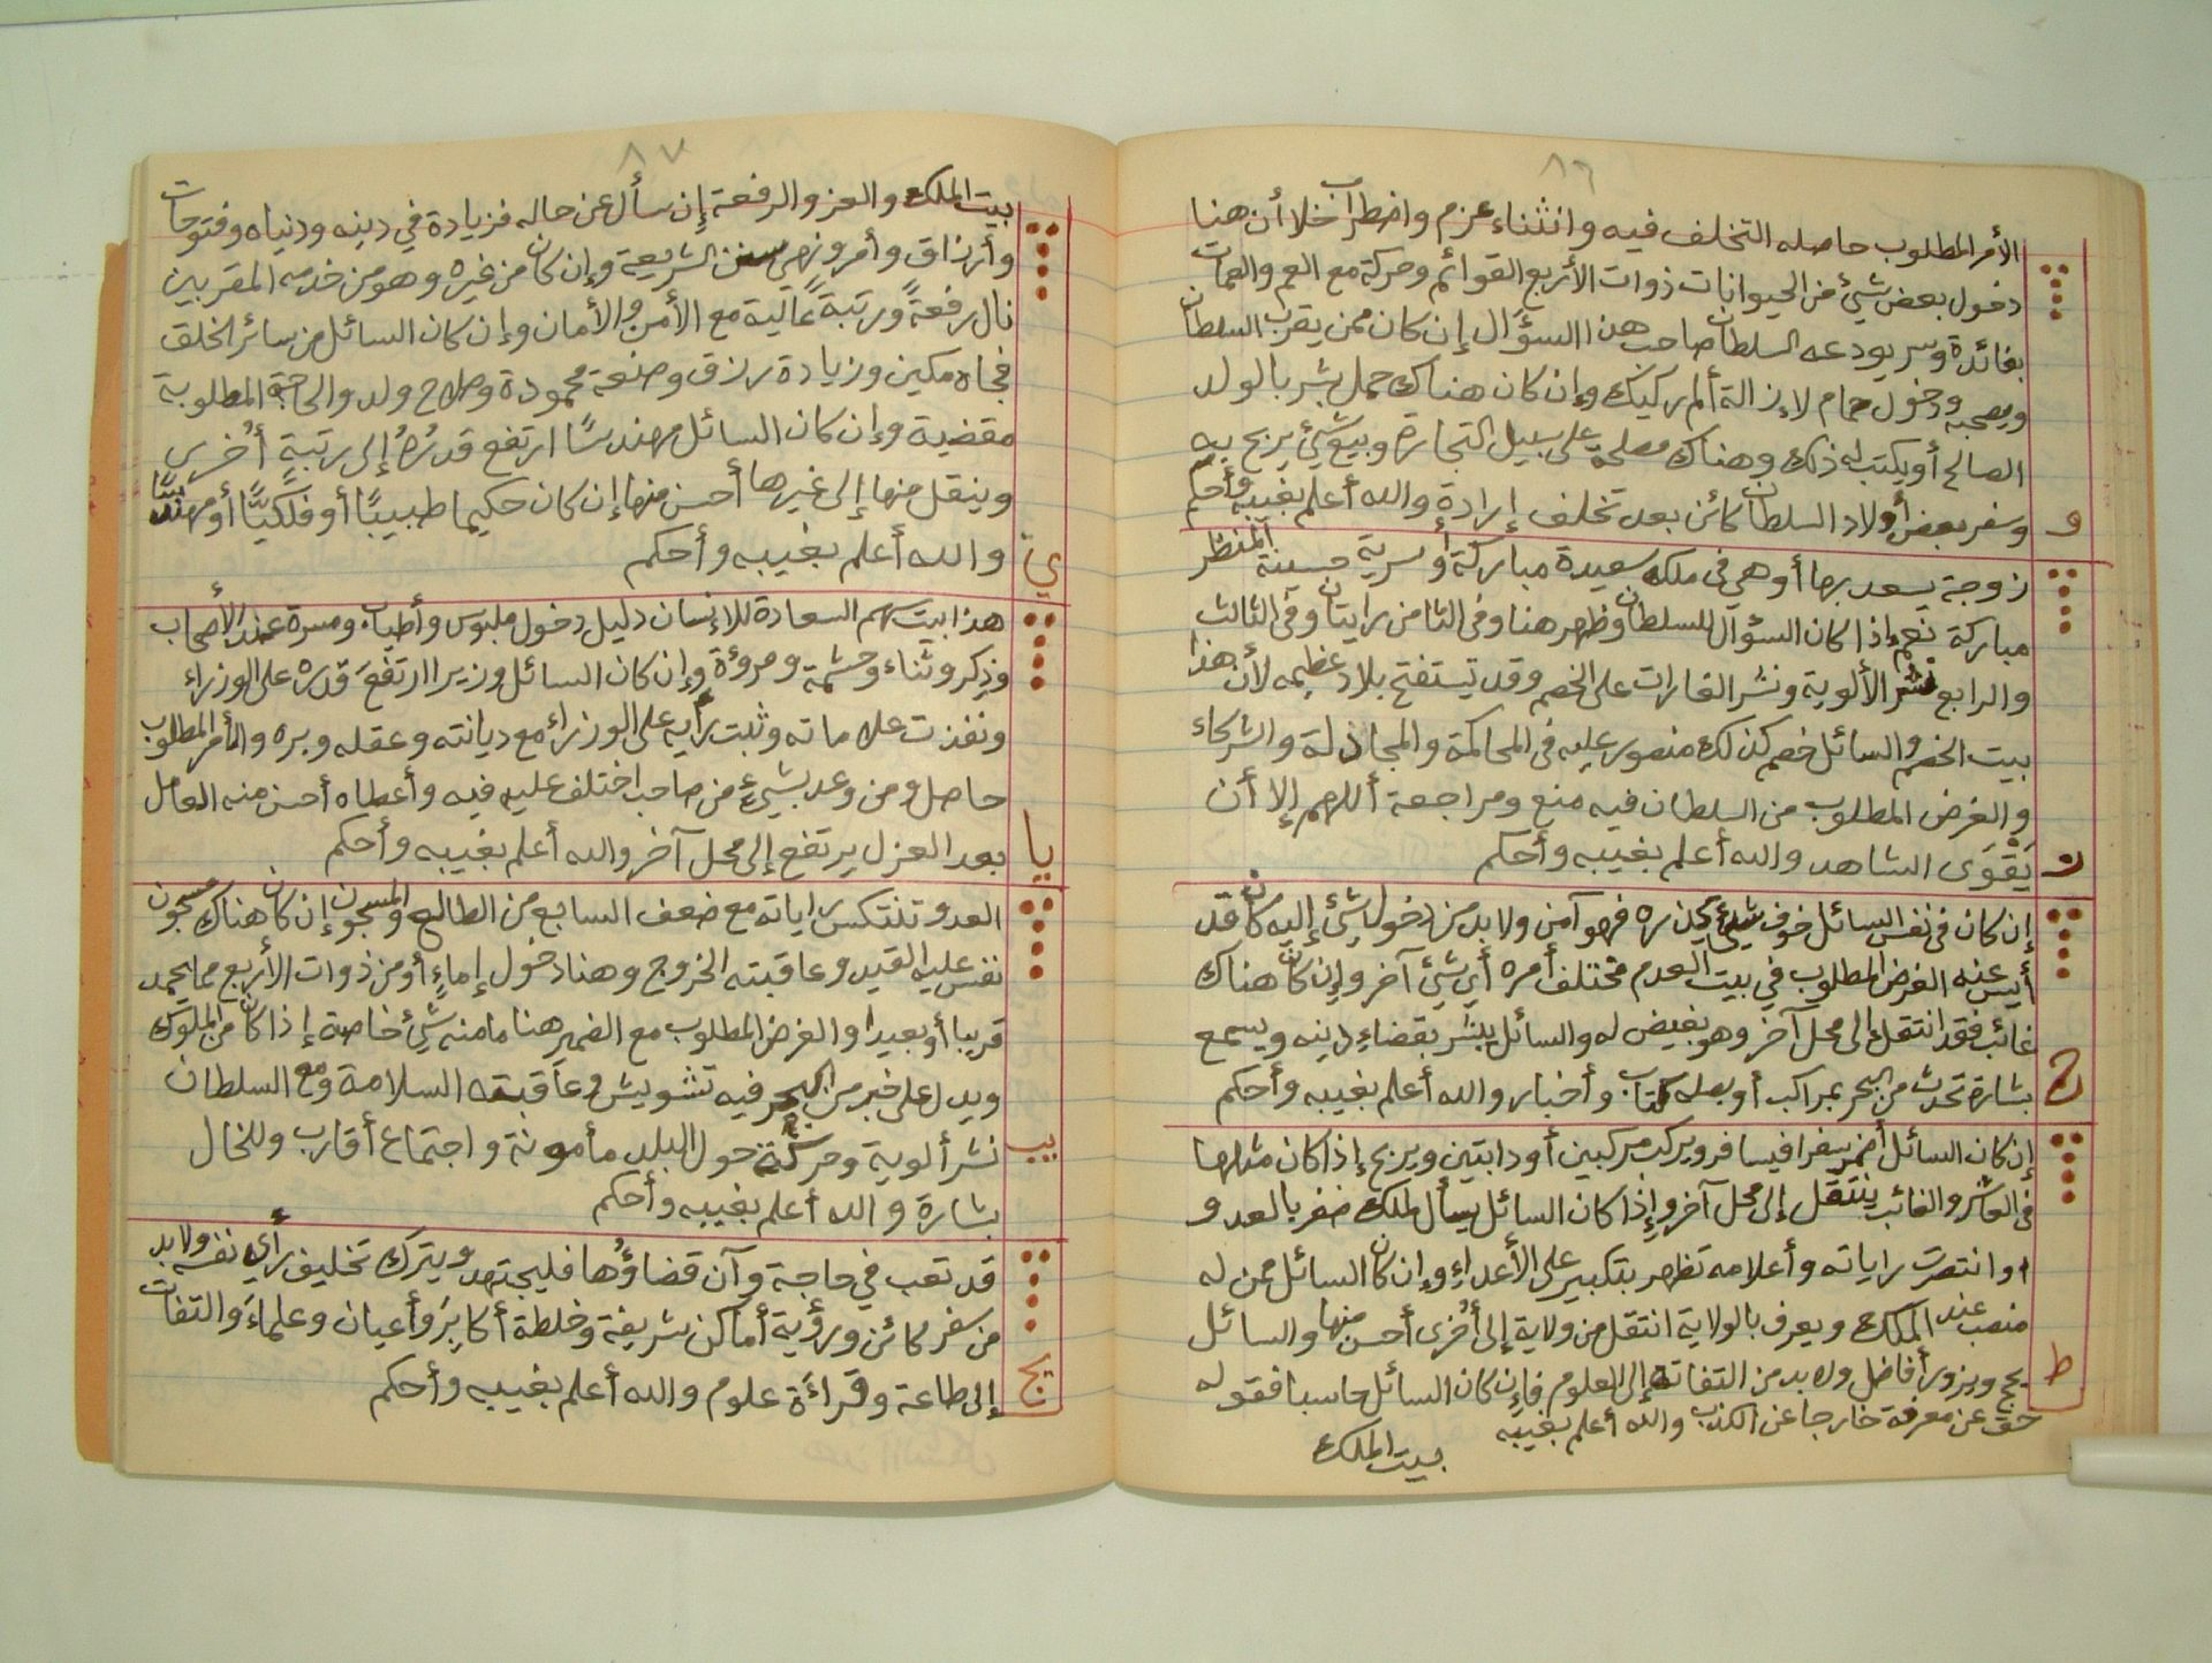 ٨٦
الأمر المطلوب حاصله التخلف فيه وانثناء عزم واضطراب خلا أن هنا
دخول بعض شيئ من الحيوانات ذوات الأربع القوائم وحركة مع العم والعمات
بفائدة وسر يودعه السلطان صاحب هذا السؤال إن كان ممن يقرب السلطان
ويصحبه ودخول حمام لإزالة ألم ركيك وإن كان هناك حمل بشر بالولد
الصالح أو يكتب له ذلك وهناك مصلحة على سبيل التجارة وبيع شيئ يربح به
وسفر بعض أولاد السلطان كائن بعد تخلف إرادة والله أعلم بغيبه وأحكم
و
زوجة يسعد بها أو هي في ملكه سعيدة مباركة أو سرية حسينة المنظر
مباركة نعم إذا كان السؤال للسلطان وظهر هنا وفى الثامن رايتان وفى الثالث
والرابع نشر الألوية ونشر الغارات على الخصم وقد تستفتح بلاد عظيمه لأن هذا
بيت الخصم والسائل خصم كذلك منصور عليه فى المحاكمة والمجاذلة والشركاء
والغرض المطلوب من السلطان فيه منع ومراجعة أللهم إلا أن
يَقْوَى الشاهد والله أعلم بغيبه وأحكم
ز
إن كان فى نفس السائل خوف شيئ يحذره فهو آمن ولا بد من دخول شيئ إليه كان قد
أيس عنه الغرض المطلوب في بيت العدم مختلف أمره أي شيئ آخر وإن كان هناك
غائب فقد انتقل إلى محل آخر وهو بغيض له والسائل يبشر بقضاء دينه ويسمع
بشارة تحدث من البحر بمراكب أو يصله كتاب وأخبار والله أعلم بغيبه وأحكم
ح
إن كان السائل أضمر سفرا فيسافر ويركب مركبين أو دابتين ويربح إذا كان مثلها
فى العاشر والغائب ينتقل إلى محل آخر وإذا كان السائل يسأل لملك ضفر بالعدو
او انتصرت راياته وأعلامه تظهر بتكبير على الأعداء وإن كان السائل ممن له
منصب عند الملك ويعرف بالولاية انتقل من ولاية إلى أخرى أحسن منها والسائل
يحج ويزور أفاضل ولا بد من التفاته إلى العلوم فإن كان السائل حاسبا فقوله
حق عن معرفة خارجا عن الكذب والله أعلم بغيبه
ط
بيت الملك
٨٧
بيت الملك والعز والرفعة إن سأل عن حاله فزيادة في دينه ودنياه وفتوحات
وأرزاق وأمر ونهي سنن الشريعة وإن كان من غيره وهو من خدمه المقربين
نال رفعةً ورتبةً عاليةً مع الأمن والأمان وإن كان السائل من سائر الخلق
فجاه مكين وزيادة رزق وصنعة محمودة وصلاح ولد والحاجة المطلوبة
مقضية وإن كان السائل مهندسًا ارتفع قدرُهُ إلى رتبةٍ أُخرى
وينقل منها إلى غيرها أحسن منها إن كان حكيما طبيبًا أو فلكيًّا أو مهندسًا
والله أعلم بغيبه وأحكم
ي
هذا بيت سهم السعادة للإنسان دليل دخول ملبوس وأطياب ومسرة عند الأصحاب
وذِكر وثناء وحشمة ومروءة وإن كان السائل وزيرا ارتفعَ قدره على الوزراء
ونفذت علاماته وثبت رأيه على الوزراء مع ديانته وعقله وبره والأمر المطلوب
حاصل ومن وعد بشيئ من صاحب اختلف عليه فيه وأعطاه أحسن منه العامل
بعد العزل يرتفع إلى محل آخر والله أعلم بغيبه وأحكم
يا
العدو تنتكس راياته مع ضعف السابع من الطالع والمسجون إن كان هناك مسجون
نفس عليه القيد وعاقبته الخروج وهنا دخول إماءٍ أو من ذوات الأربع مما يحمد
قريبا أو بعيدا والغرض المطلوب مع الضمير هنا ما منه شيئ خاصة إذا كان من الملوك
ويدل على خبر من البحر فيه تشويش وعاقبته السلامة ومع السلطان
نشر ألوية وحركة حول البلد مأمونة واجتماع أقارب وللخال
بشارة والله أعلم بغيبه وأحكم
يب
قد تعب في حاجة وآن قضاؤُها فليجتهد ويترك تخليف رأي نفسه ولابد
من سفر كائن ورؤية أماكن شريفة وخلطة أكابِرَ وأعيان وعلماءَ والتفات
إلى طاعة وقراءَة علوم والله أعلم بغيبه وأحكم
يج